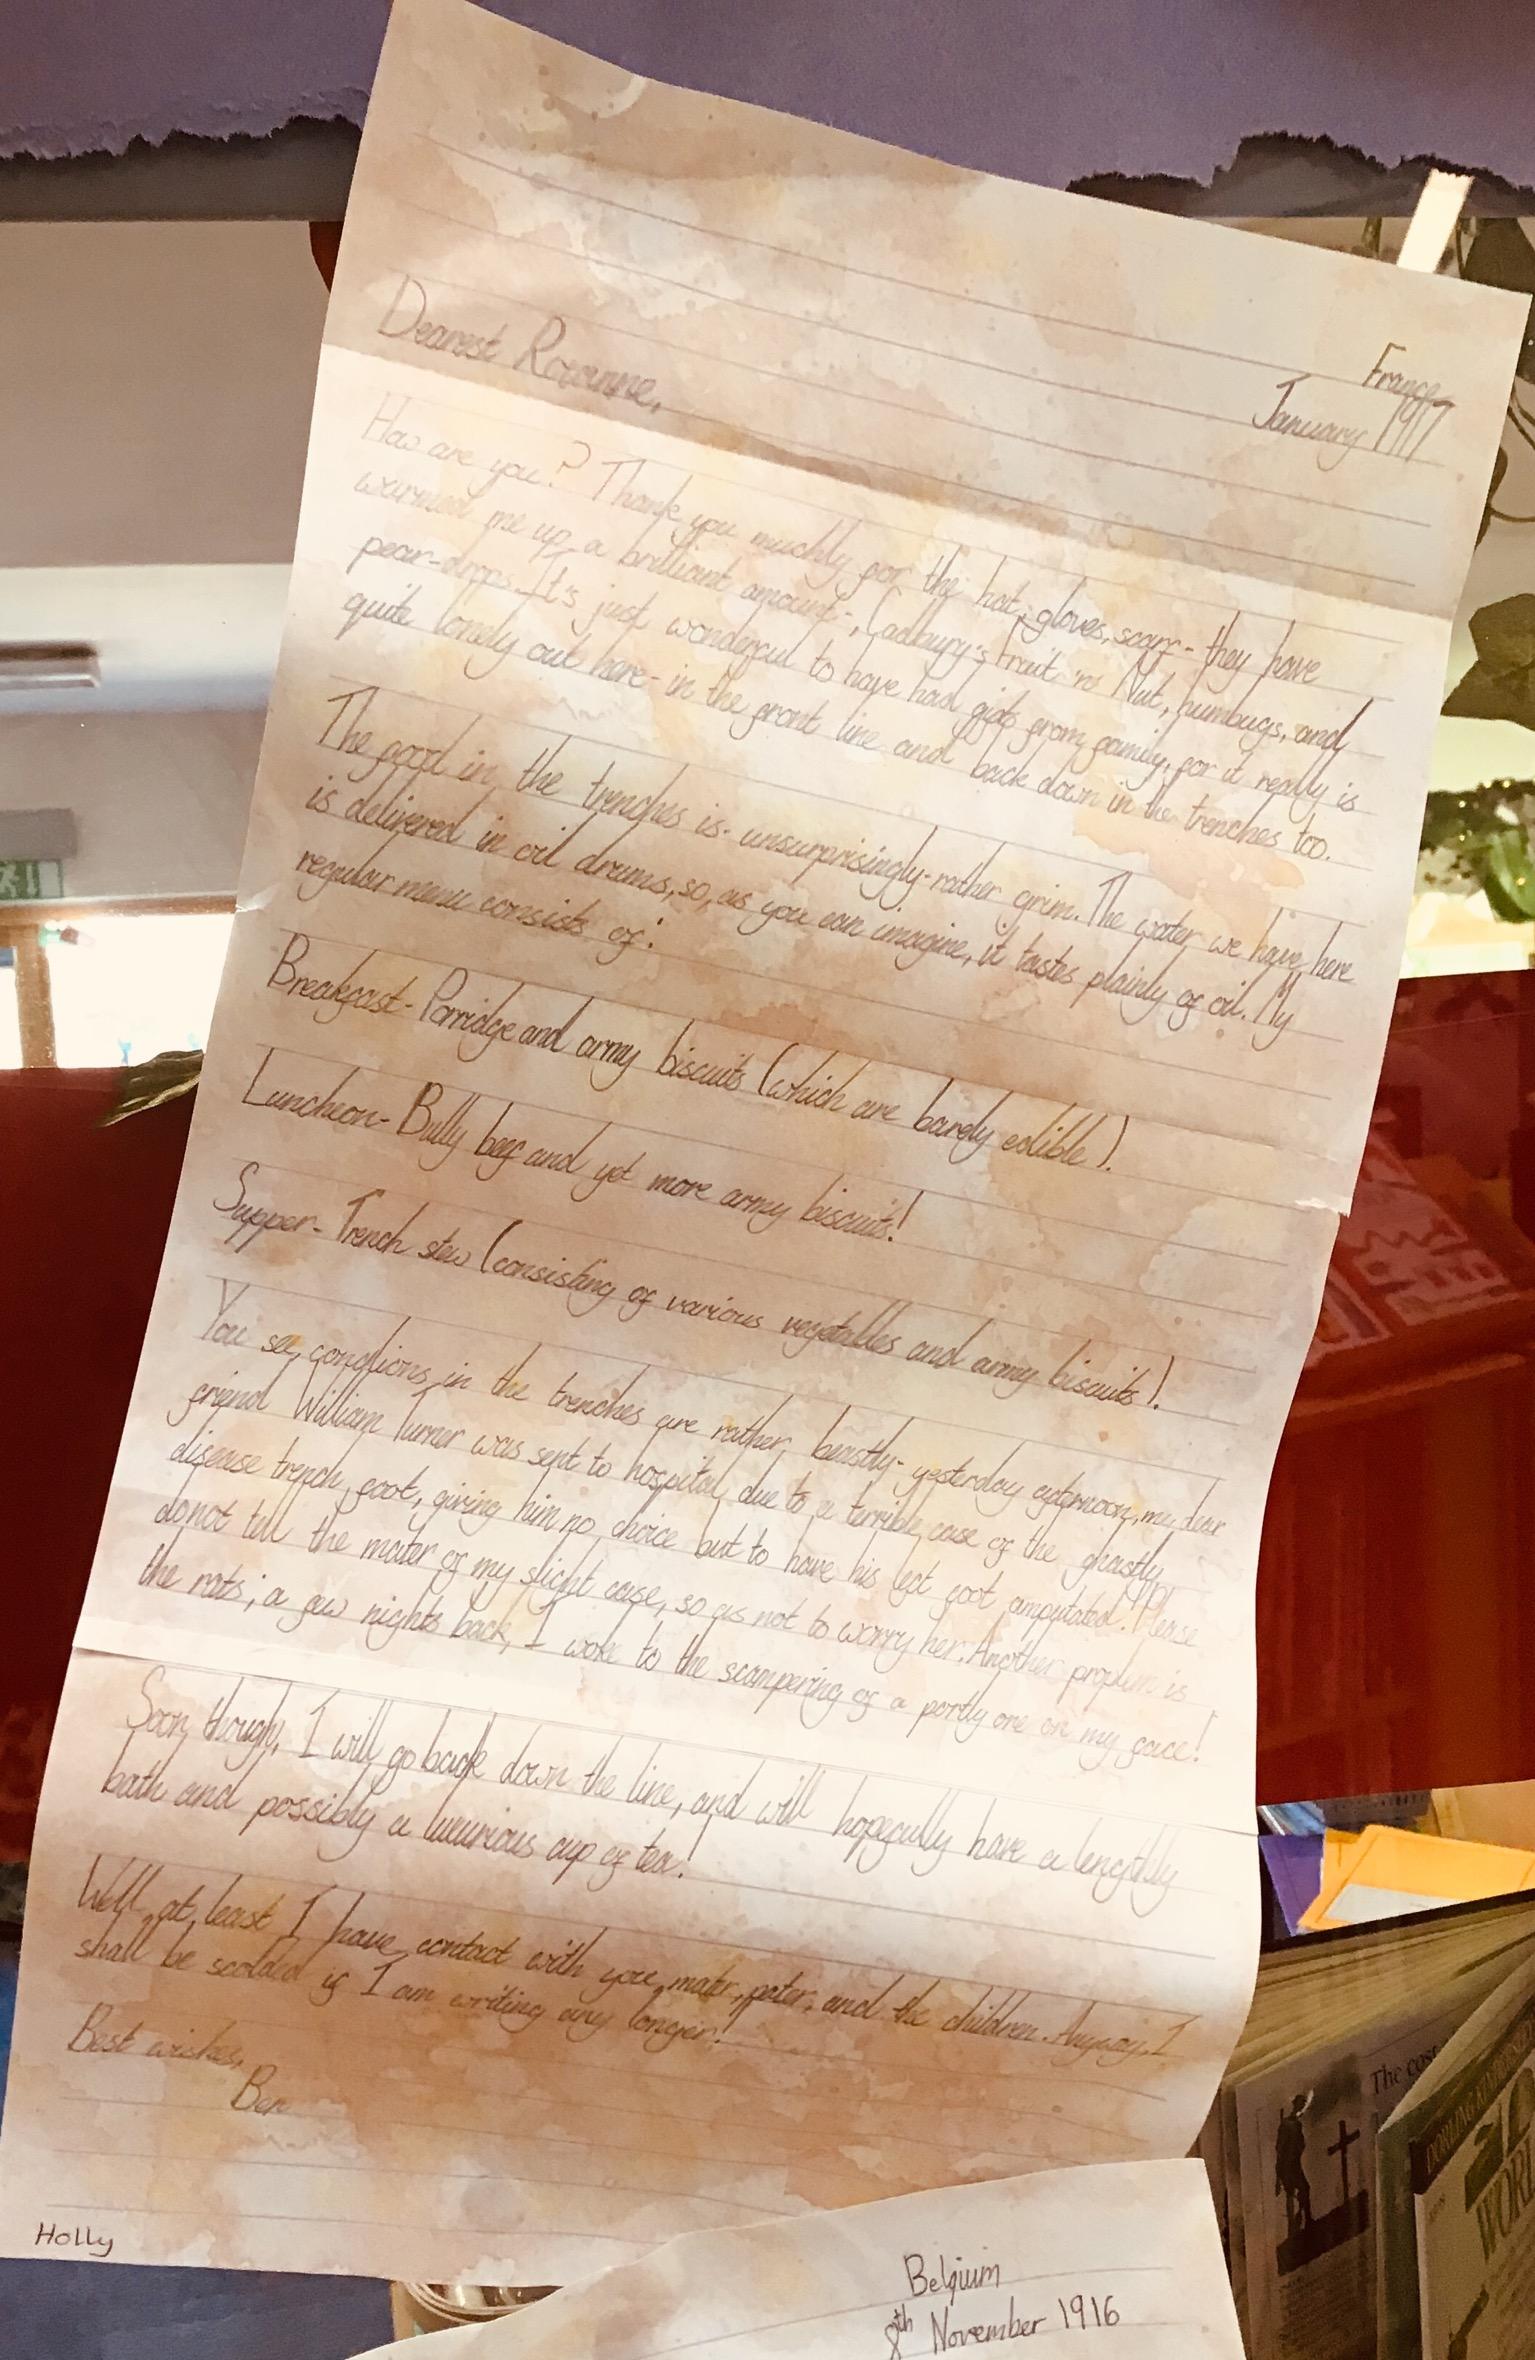 France
January 1917
Dearest Roxanne,
How are you? Thank you muchly for the hat, gloves, scarf - they have
warmed me up a brilliant amount-, Cadbury's Fruit 'n' Nut, humbugs, and
pear-drops. It's just wonderful to have had gifts from family, for it really is
quite lonely out here - in the front line and back down in the trenches too.
The food in the trenches is - unsurprisingly - rather grim. The water we have here
is delivered in oil drums, so, as you can imagine, it tastes plainly of oil. My
regular menu consists of:
Breakfast - Porridge and army biscuits (which are barely edible!).
Luncheon - Bully beef and yet more army biscuits!
Supper - Trench stew (consisting of various vegetables and army biscuits!).
You see, conditions in the trenches are rather beastly - yesterday afternoon, me dear
friend William Turner was sent to hospital due to a terrible case of the ghastly
disease trench foot, giving him no choice but to have his left foot amputated! Please
do not tell the mater of my slight case, so as not to worry her. Another problem is
the rats; a few nights back, I woke to the scampering of a portly one on my face!
Soon though, I will go back down the line, and will hopefully have a lengthly
bath and possibly a luxurious cup of tea!
Well, at least I have contact with you, mater, pater, and the children. Anyway, I
shall be scolded if I am writing any longer!
Best wishes,
Ben
Holly
Belgium
8th November 1916
The cost
DORLING KINDERSLEY
WORL